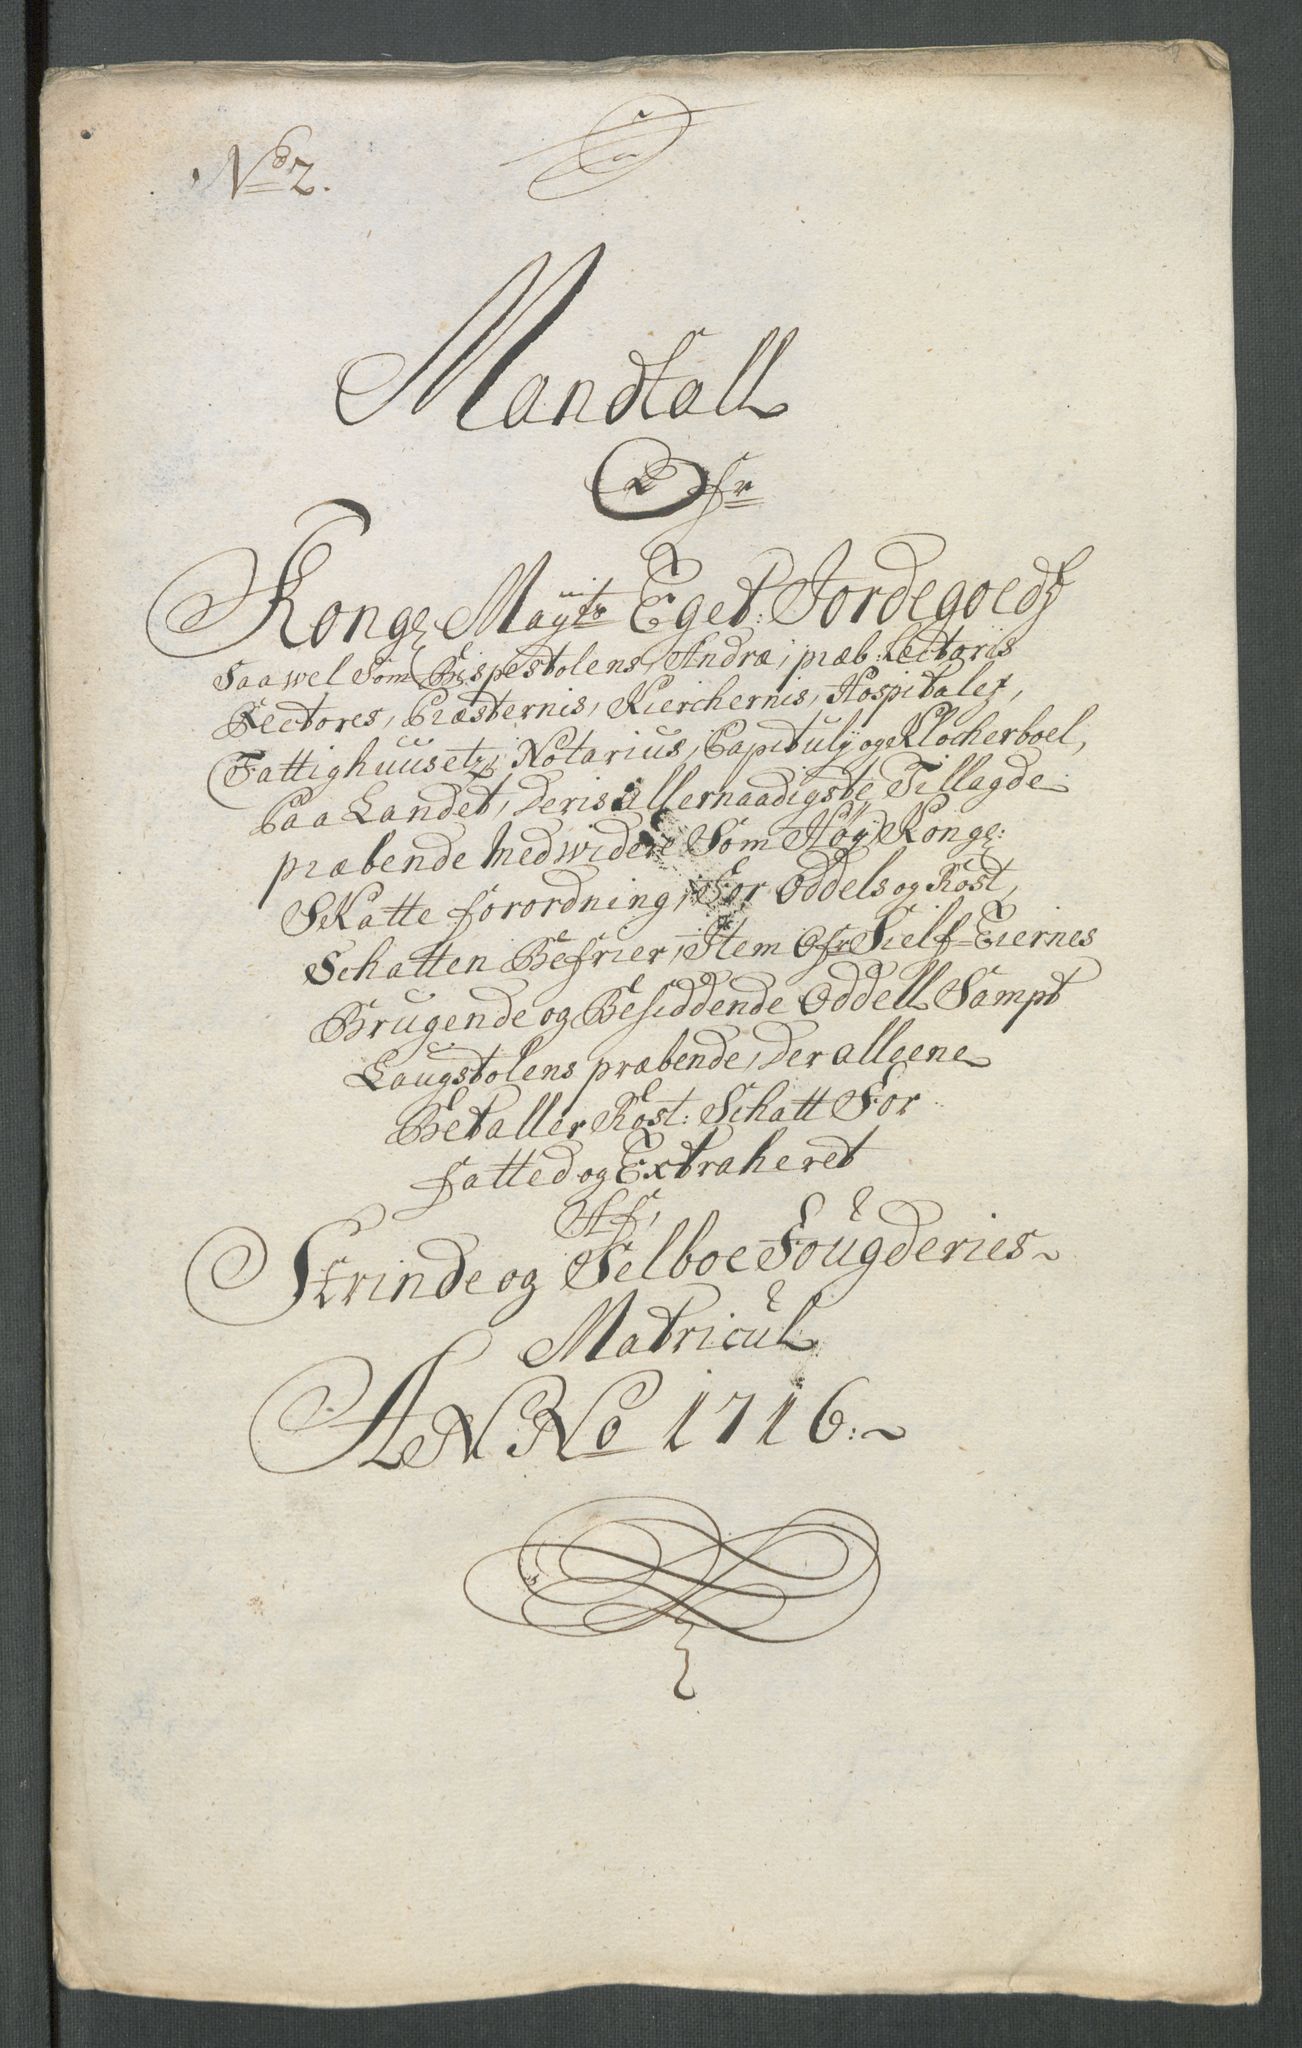 No 2.
Mandtall
Ofr
Kong: Mayts Eget Jordegoeds
Saawel Som Bispestolens, Andræ, præb: Lectoris
Rectores, Præsternis, Kierchernis, Hospitales,
Fattighuusetz, Notarius, Capituly og Klocherboel,
Paa Landet, Deris Allernaadigste Tillagde
præbende Med widere Som Høy Kong:
Skatte forordning, For Oddels og Rost,
Schatten Befrier, Item Ofr Sielf=Eiernes
Brugende og Besiddende Oddell Sampt
Laugstolens præbende, Der alleene
Betaller Rost: Schatt For
fatted og Extraheret
Af,
Strinde og Selboe Fougderies
Matricul
ANNo 1716: